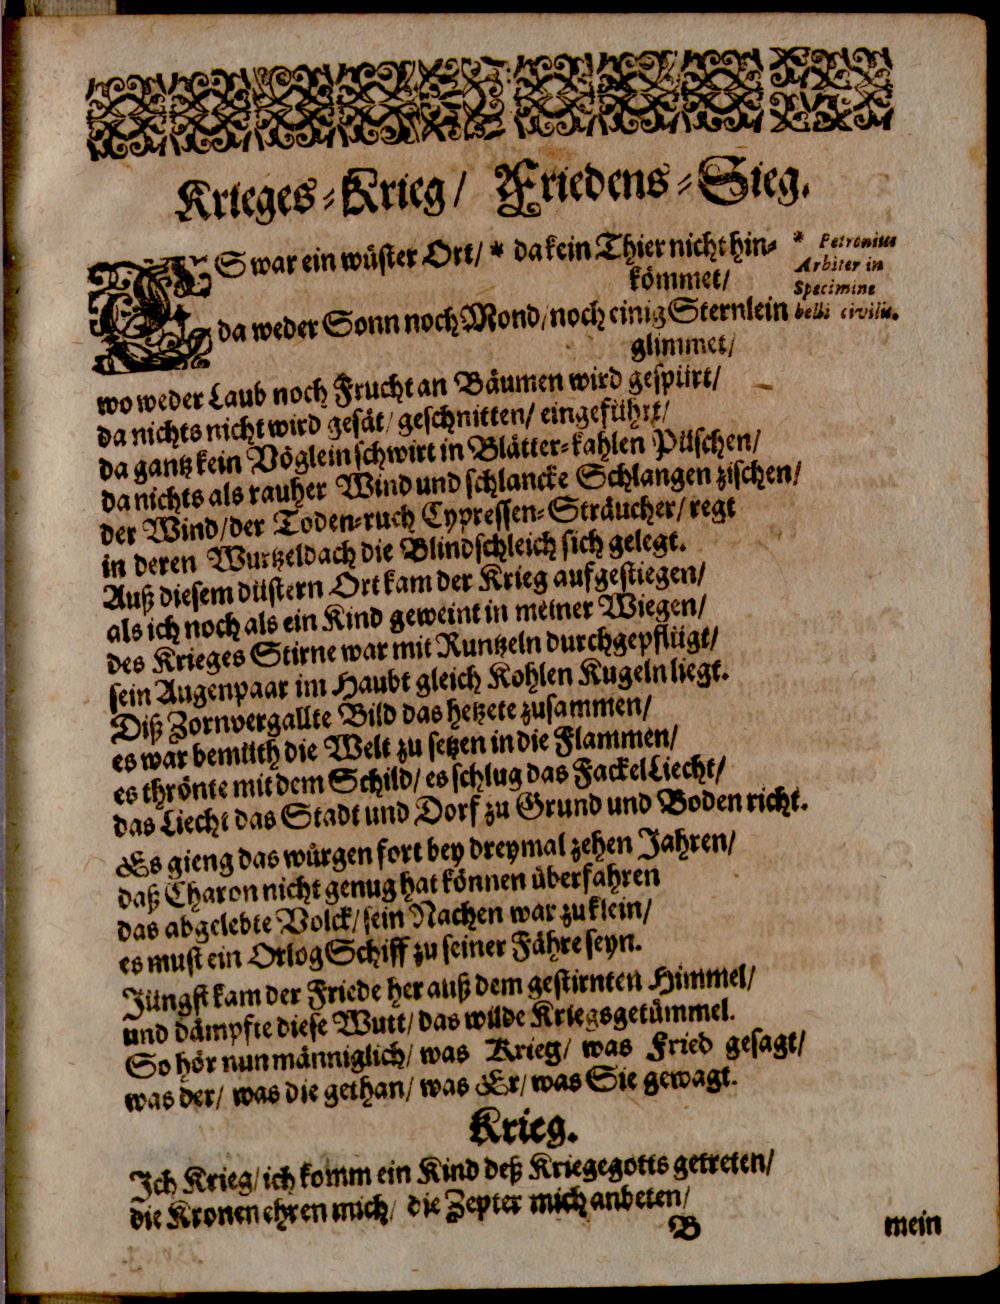 Krieges-Krieg/ Friedens-Sieg.
ES war ein wüster Ort/ * da kein Thier nicht hin-
kömmet/
* Petronius
Arbiter in
Specimine
belli civilis.
da weder Sonn noch Mond/ noch einig Sternlein
glimmet/
wo weder Laub noch Frucht an Bäumen wird gespürt/
da nichts nicht wird gesät/ geschnitten/ eingeführt/
da gantz kein Vöglein schwirt in Blätter-kahlen Püschen/
da nichts als rauher Wind und schlancke Schlangen zischen/
der Wind/ der Toden-ruch Cypressen-Sträucher/ regt
in deren Wurtzeldach die Blindschleich sich gelegt.
Auß diesem düstern Ort kam der Krieg aufgestiegen/
als ich noch als ein Kind geweint in meiner Wiegen/
des Krieges Stirne war mit Runtzeln durchgepflügt/
sein Augenpaar im Haubt gleich Kohlen Kugeln liegt.
Diß Zornvergallte Bild das hetzete zusammen/
es war bemüth die Welt zu setzen in die Flammen/
es thrönte mit dem Schild/ es schlug das Fackel Liecht/
das Liecht das Stadt und Dorf zu Grund und Boden richt.
Es gieng das würgen fort bey dreymal zehen Jahren/
daß Charon nicht genug hat können überfahren
das abgelebte Volck/ sein Nachen war zu klein/
es must ein Orlog Schiff zu seiner Fähre seyn.
Jüngst kam der Friede her auß dem gestirnten Himmel/
und dämpfte diese Wutt/ das wilde Kriegsgetümmel.
So hör nun männiglich/ was Krieg/ was Fried gesagt/
was der/ was die gethan/ was Er/ was Sie gewagt.
Krieg.
Ich Krieg/ ich komm ein Kind deß Kriegegotts getreten/
die Kronen ehren mich/ die Zepter mich anbeten/
B
mein